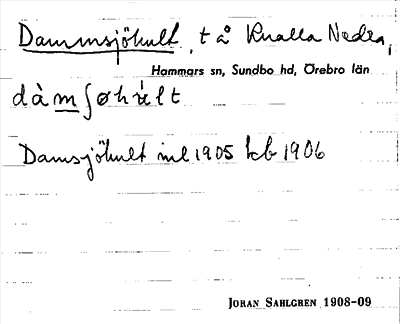 Dammsjöhult, t å Knalla Nedra,
Hammars sn, Sundbo hd, Örebro län
dàmʃøhúlt
Damsjöhult inl 1905 kb 1906
JORAN SAHLGREN 1908-09